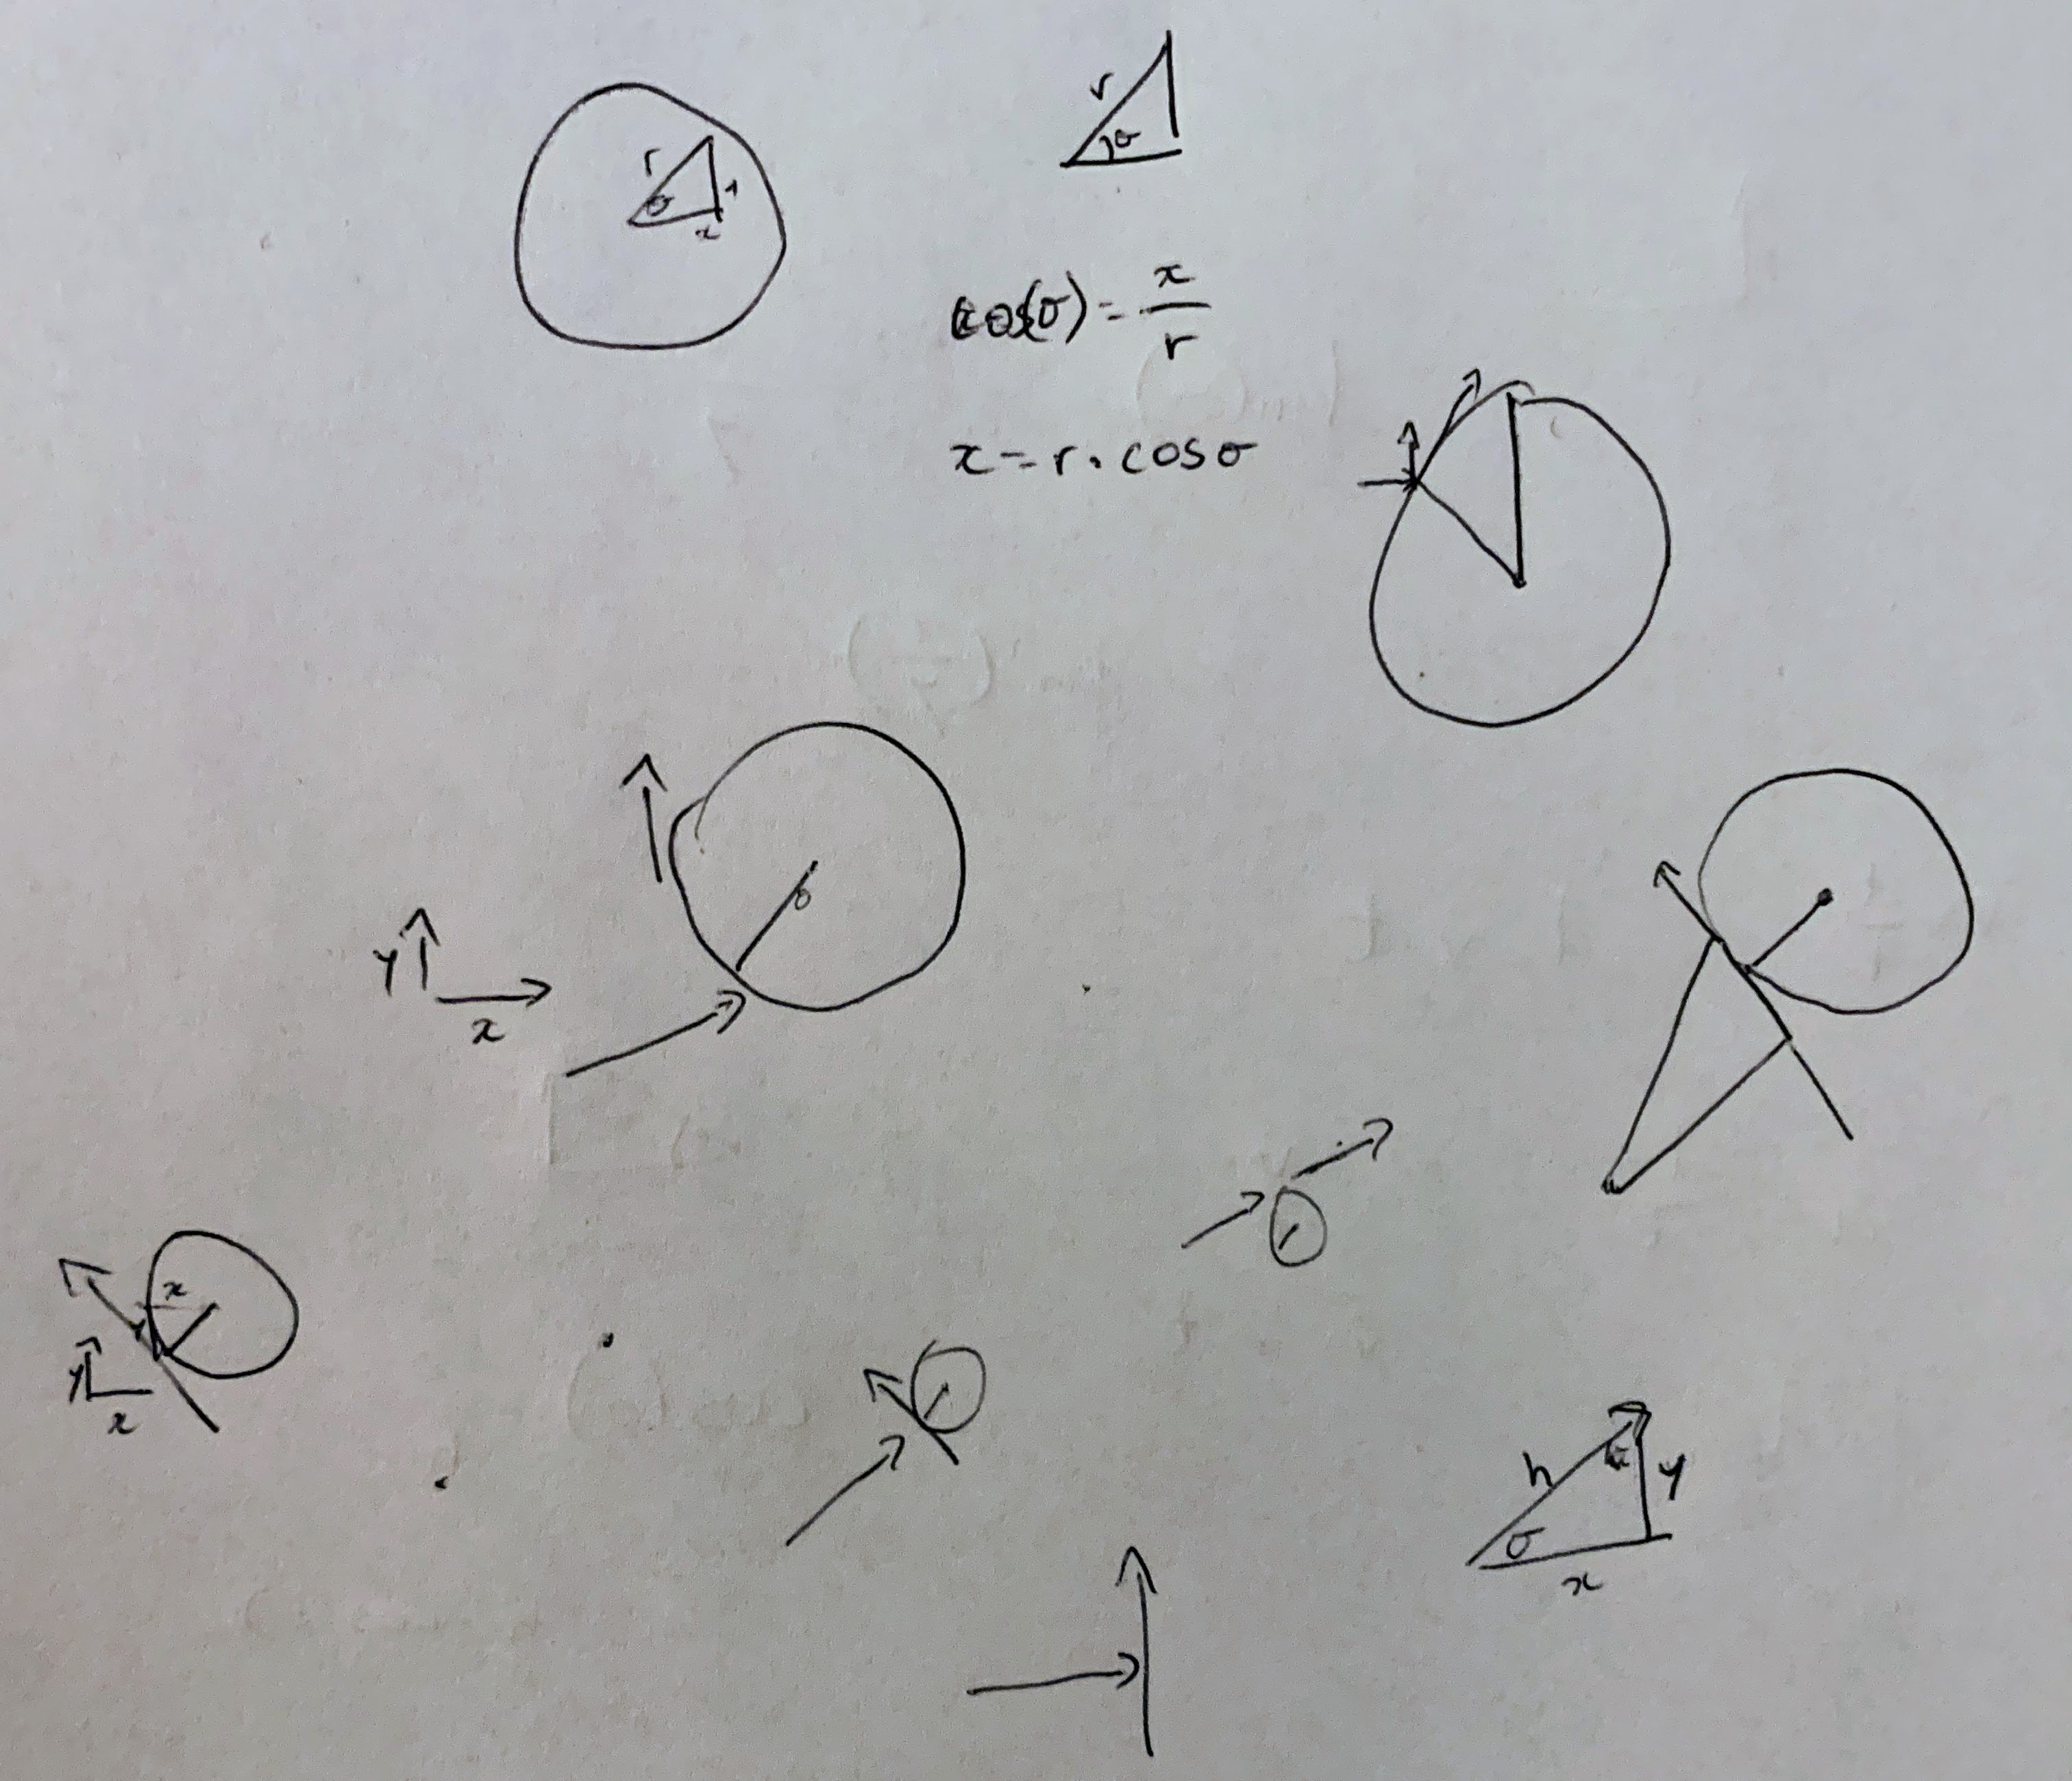 r
θ
r
θ
x
cos(θ) = x/r
x = r . cosθ
θ
y
x
x
y
x
h
y
θ
x